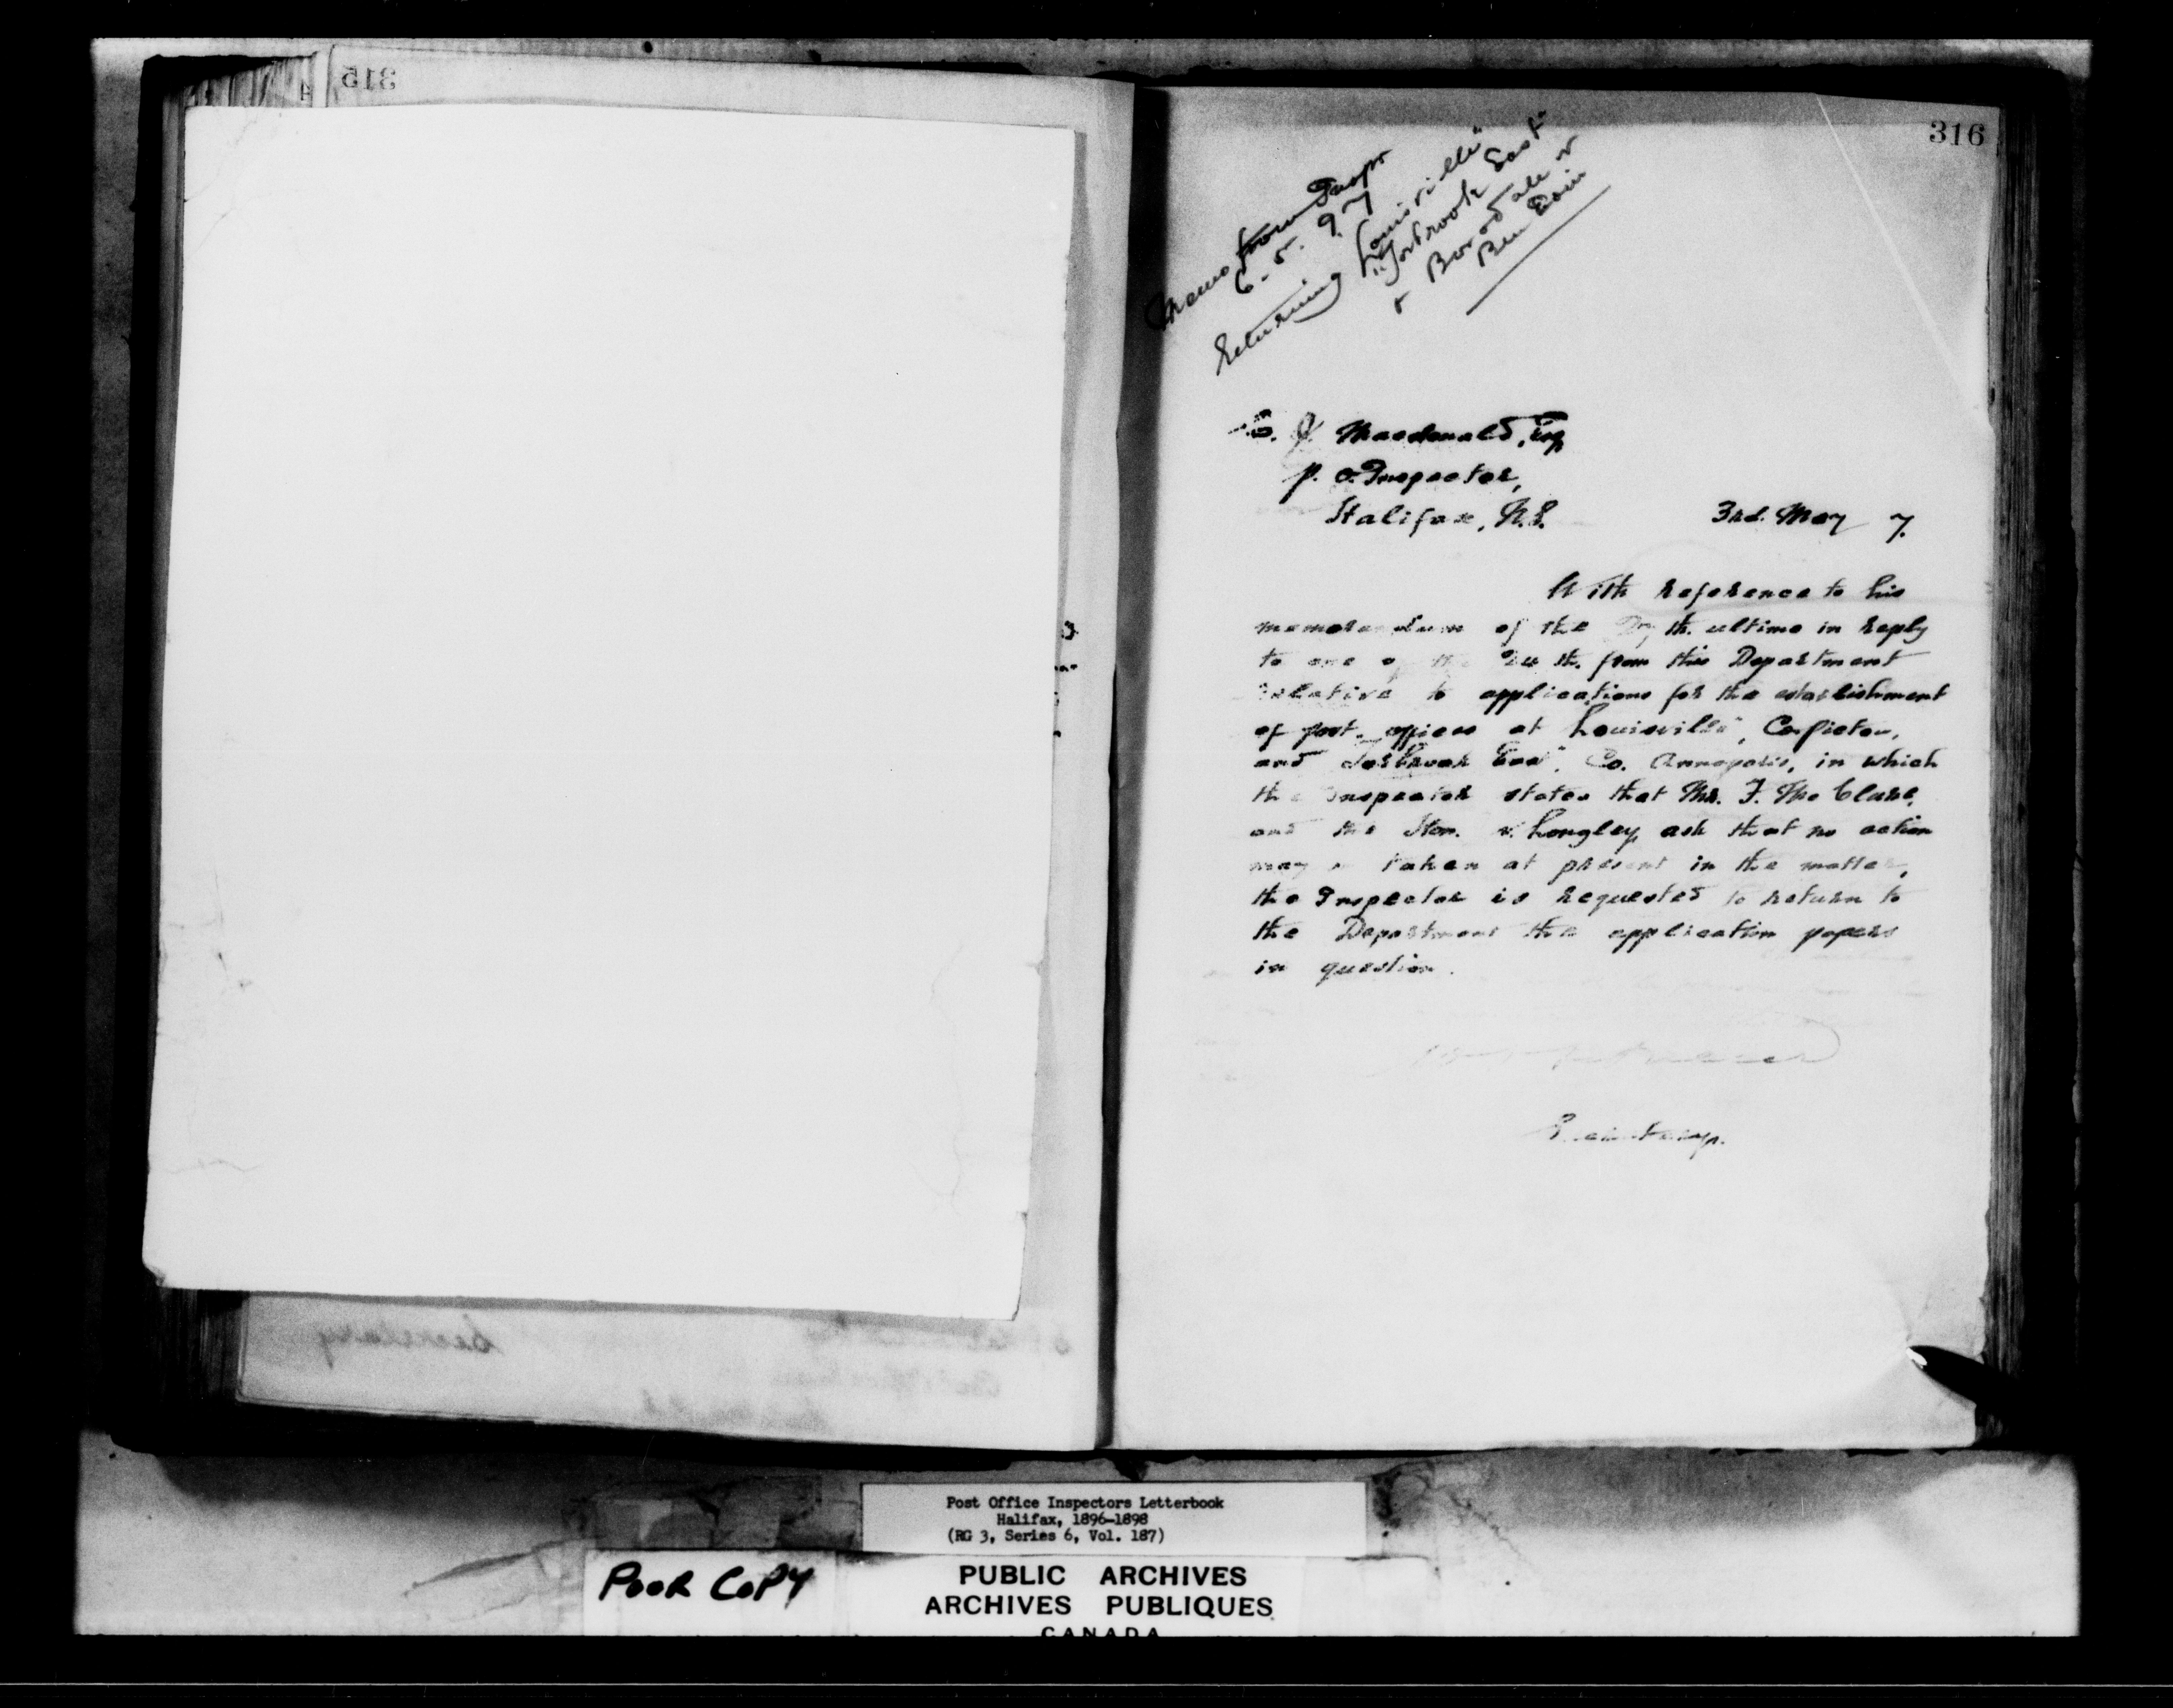 315
316
Memo from Inspr
6-5.97
Returning "Louisville"
"Torbrook East"
+ Borodale +
Ben Eoin
C. J. Macdonald, Esq
P. O. Inspector,
Halifax, N.S. 3rd. May 7.
With reference to his
memorandum of the th. ultimo in reply
to one of the th. from this Department
relative to applications for the establishment
of post-offices at "Louisville", Co. Pictou,
and "Torbrook East", Co. Annapolis, in which
the Inspector states that Mr. F. McClure,
and the Hon. Longley ask that no action
may be taken at present in the matter,
the Inspector is requested to return to
the Department the application papers
in question.
Secretary
Post Office Inspectors Letterbook
Halifax, 1896-1898
(RG 3, Series 6, Vol. 187)
POOR COPY
PUBLIC ARCHIVES
ARCHIVES PUBLIQUES
CANADA